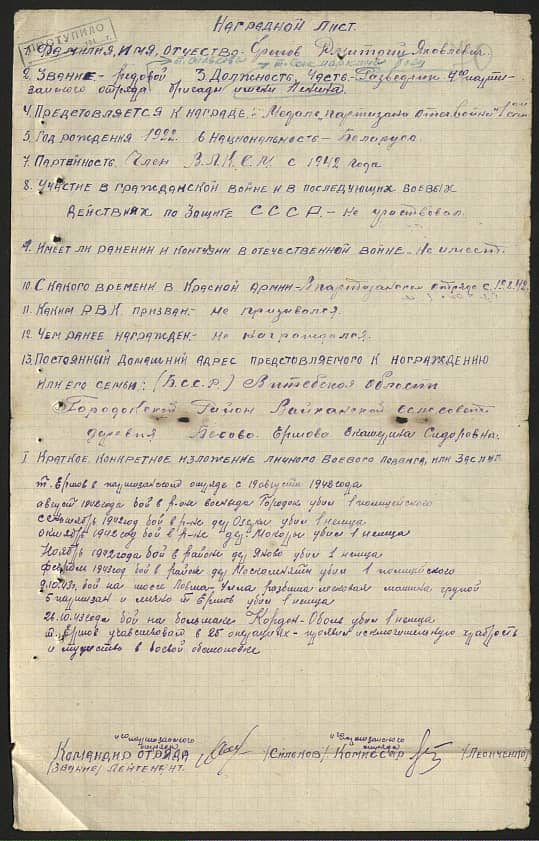 Наградной Лист.
ПОСТУПИЛО
1. Фамилия, имя, отчество - Ершов Яковлевич
2. Звание - рядовой 3. Должность, часть - Разведчик 4го парти-
занского отряда бригады имени Ленина.
4. Представляется к награде - Медаль партизана отеч. войны 1
5. Год рождения 1922. 6 Национальность - Беларус
7. Партийность Член В.Л.К.С.М. с 1942 года
8. Участие в гражданской войне и в последующих боевых
действиях по защите С С С Р. - Не участвовал.
9. Имеет ли ранении и контузии в отечественной войне - Не имеет.
10. С какого времени в Красной Армии - В партизанском отряде с 19.8.42.
11. Каким Р.В.К. призван - не призывался.
12. Чем ранее награжден - не награждался.
13. Постоянный домашний адрес предстовляемого к награждению
или его семьи: (Б.С.С.Р.) Витебская область
Городокский Район сельсовет
деревня Ершова Екатерина Сидоровна.
I. Краткое, конкретное изложение личного боевого подвига, или заслуг
т. Ершов в партизанском отряде с 19 августа 1942 года
август 1942 года бой в р-оне Городок убил 1 полицейского
Сентябрь 1942 год бой в р-не дер Озерки убил 1 немца
октябрь 1942 год бой в р-не дер. убил 1 немца
Ноябрь 1942 года бой в районе дер Яново убил 1 немца
февраль 1943 год бой в район дер убил 1 полицейского
9.10.43г. бой на шоссе Улла разбита легковая машина групой
5 партизан и лично т Ершов убил 1 немца
26.10.43 года бой на большаке Кордон - Оболь убил 1 немца
т. Ершов учавствовал в 25 операциях - проявил исключительную храбрость
и мужество в боевой обстановке
"4го партизанского отряда "4го партизанского отряда
Командир отряда /Силоков/ Комиссар /Леонченко/
/звание/ Лейтенент.